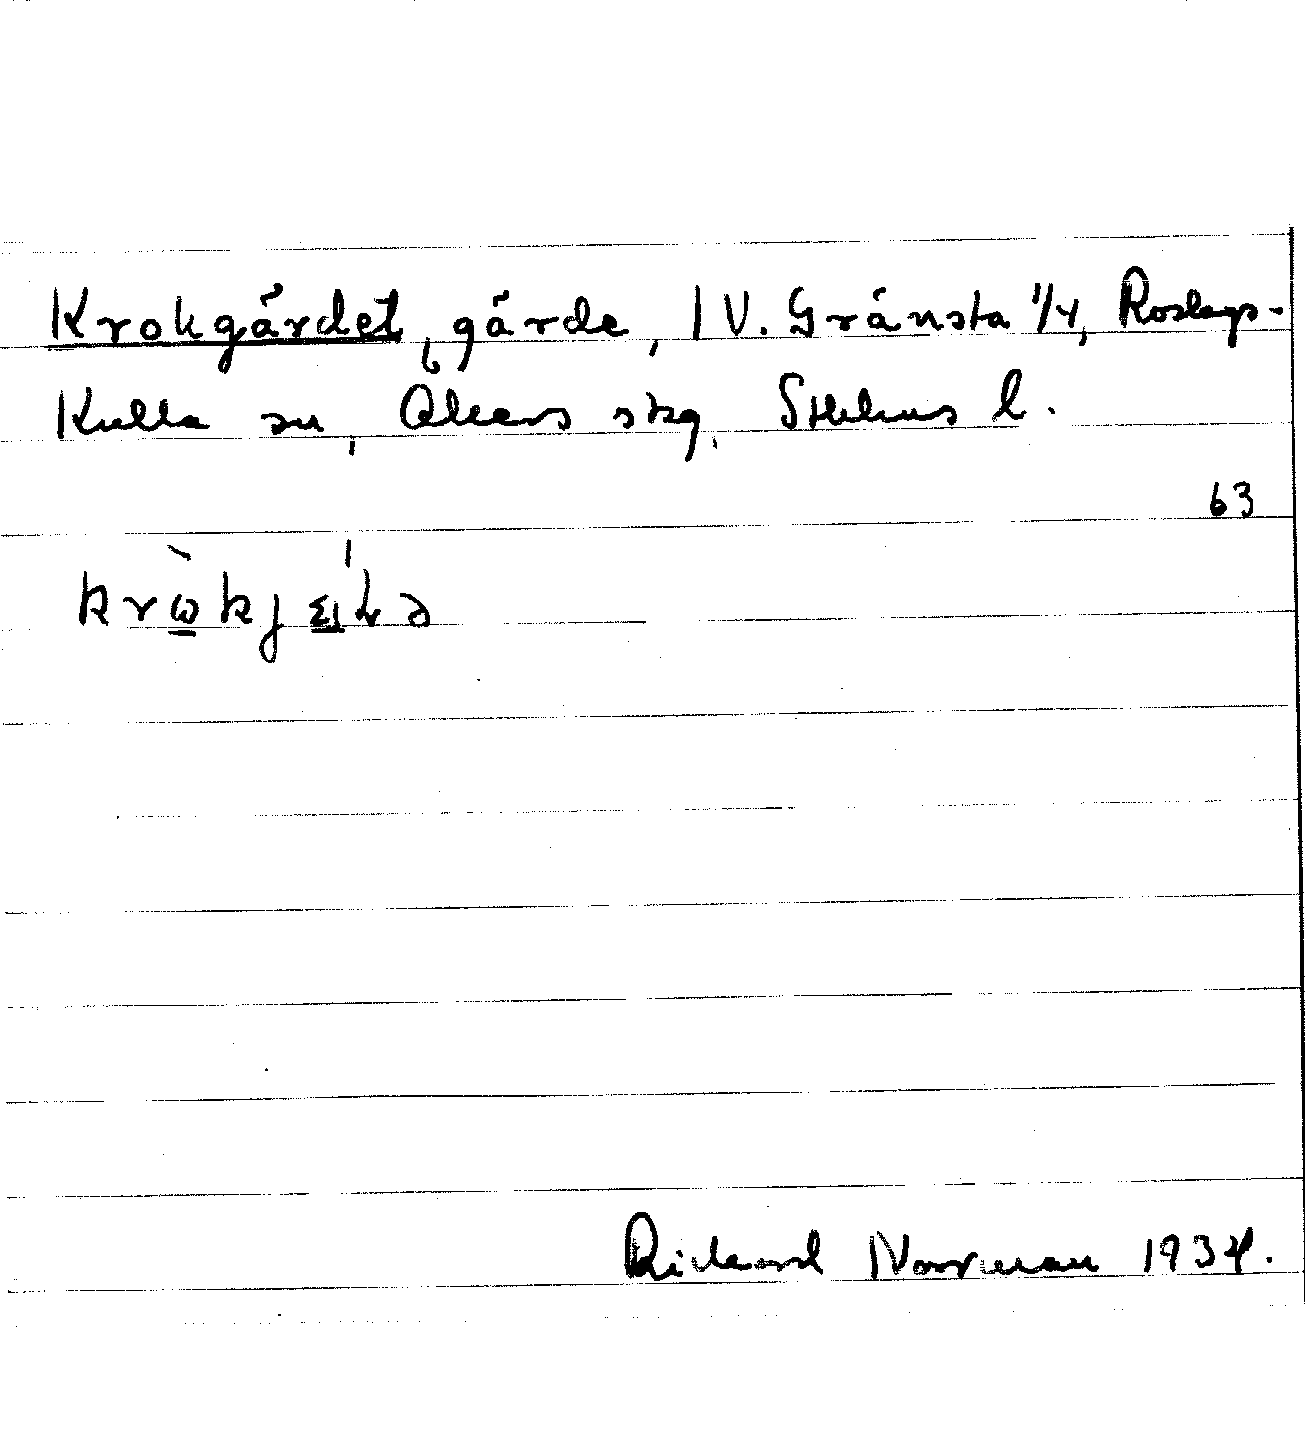 Krokgärdet, gärde, 1 V. Gränsta 1/4, Roslags-
Kulla sn, Åkers skg, Sthlms l.
63
Rickard Norrman 1934.